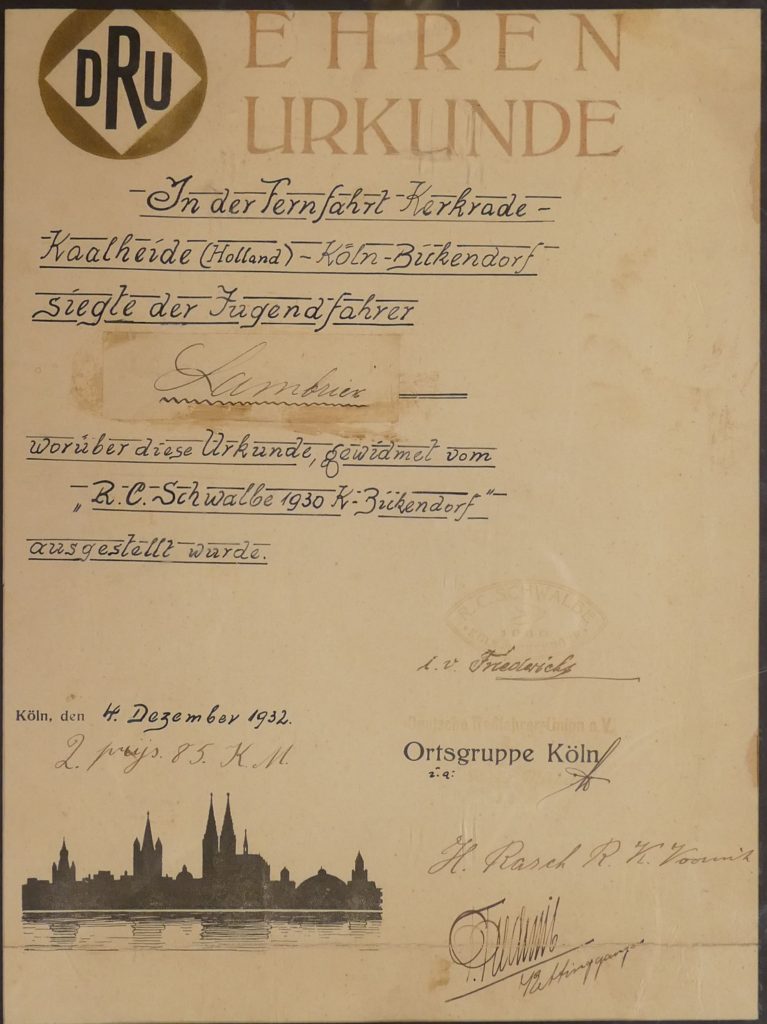 DRU
EHREN
URKUNDE
In der Fernfahrt Kerkrade-
Kaalheide (Holland) - Köln-Bickendorf
siegte der Jugendfahrer
worüber diese Urkunde, gewidmet vom
„R.C. Schwalbe 1930 K-Bickendorf"
ausgestellt wurde.
R.C. SCHWALBE
i.v. Friederichs
Köln, den 4. Dezember 1932.
2. prijs. 85. K.M.
Deutsche Radfahrer-Union e.V.
Ortsgruppe Köln
H. Rasch R. K.